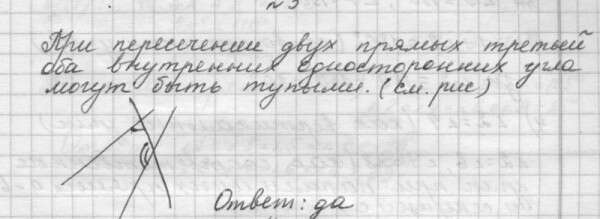 N3
При пересечении двух прямых третьей
оба внутренних односторонних угла
могут быть тупыми. (см. рис)
Ответ: да